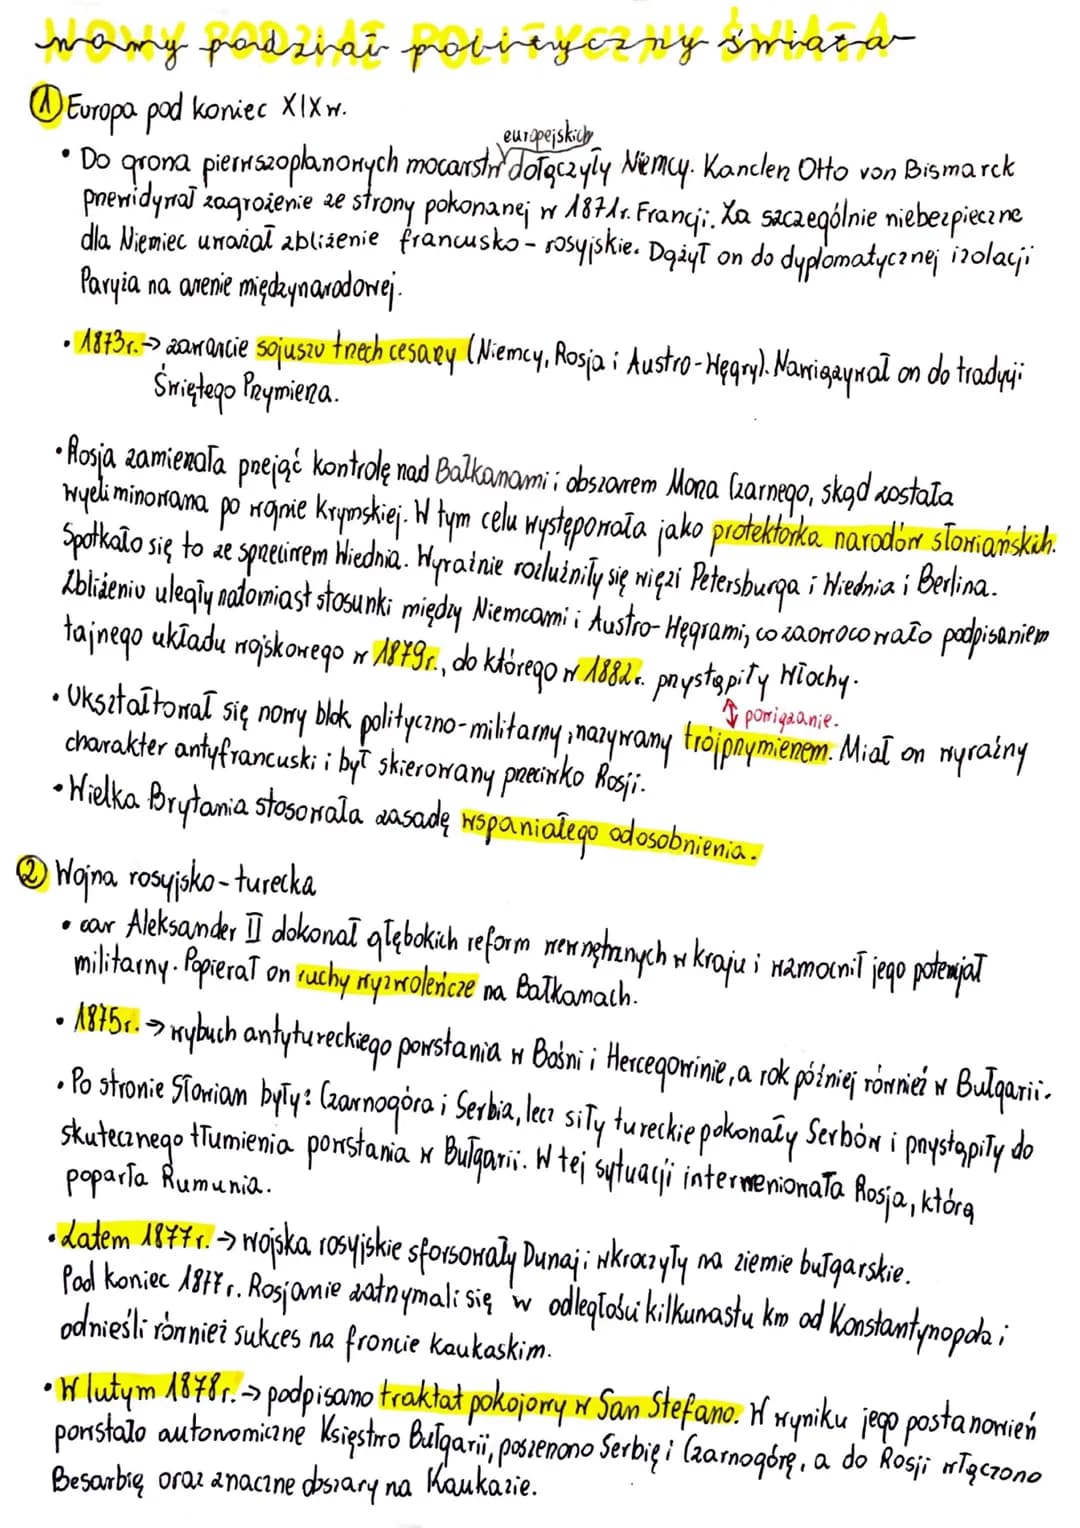 NOWY PODZIAŁ POLITYCZNY ŚWIATA
① Europa pod koniec XIX w.
europejskich
• Do grona pierwszoplanowych mocarstw dołączyły Niemcy. Kanclerz Otto von Bismarck
przewidywał zagrożenie ze strony pokonanej w 1871r. Francji. Za szczególnie niebezpieczne
dla Niemiec uważał zbliżenie francusko-rosyjskie. Dążył on do dyplomatycznej izolacji
Paryża na arenie międzynarodowej.
• 1873r. → zawarcie sojuszu trzech cesarzy (Niemcy, Rosja i Austro-Węgry). Nawiązywał on do tradycji
Świętego Przymierza.
• Rosja zamierzała przejąć kontrolę nad Bałkanami i obszarem Morza Czarnego, skąd została
wyeliminowana po wojnie Krymskiej. W tym celu występowała jako protektorka narodów słowiańskich.
Spotkało się to ze sprzeciwem Wiednia. Wyraźnie rozluźniły się więzi Petersburga i Wiednia i Berlina.
Zbliżeniu uległy natomiast stosunki między Niemcami i Austro-Węgrami, co zaowocowało podpisaniem
tajnego układu wojskowego w 1879r., do którego w 1882r. przystąpiły Włochy.
↕ powiązanie.
• Ukształtował się nowy blok polityczno-militarny, nazywany trójprzymierzem. Miał on wyraźny
charakter antyfrancuski i był skierowany przeciwko Rosji.
• Wielka Brytania stosowała zasadę wspaniałego odosobnienia.
② Wojna rosyjsko-turecka
• car Aleksander II dokonał głębokich reform wewnętrznych w kraju i wzmocnił jego potencjał
militarny. Popierał on ruchy wyzwoleńcze na Bałkanach.
• 1875r. → wybuch antytureckiego powstania w Bośni i Hercegowinie, a rok później również w Bułgarii.
• Po stronie Słowian były: Czarnogóra i Serbia, lecz siły tureckie pokonały Serbów i przystąpiły do
skutecznego tłumienia powstania w Bułgarii. W tej sytuacji interwenionała Rosja, którą
poparła Rumunia.
• Latem 1877r. → wojska rosyjskie sforsowały Dunaj i wkroczyły na ziemie bułgarskie.
Pod koniec 1877r. Rosjanie zatrzymali się w odległości kilkunastu km od Konstantynopola i
odnieśli również sukces na froncie kaukaskim.
• W lutym 1878r. → podpisano traktat pokojowy w San Stefano. W wyniku jego postanowień
powstało autonomiczne Księstwo Bułgarii, poszerzono Serbię i Czarnogórę, a do Rosji włączono
Besarbię oraz znaczne obszary na Kaukazie.